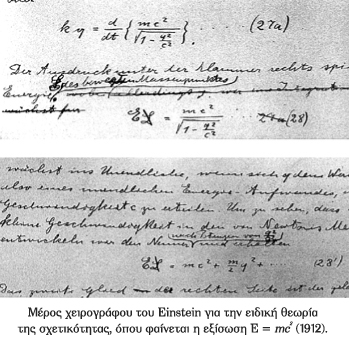 k y = d/dt { mc² / √(1 - q²/c²) } . . . . (27a)
Der Ausdruck unter der Klammer rechts
Energie
E L = mc² / √(1 - q²/c²) (28)
wächst ins Unendliche, wenn sich q dem
also eines unendlichen Energie-Aufwandes,
Geschwindigkeit c zu erteilen. Um zu sehen, dass
kleine Geschwindigkeit in den von Newtons
entwickeln wir den Nenner und erhalten
E L = mc² + m/2 q² + (28')
Das zweite Glied der rechten Seite ist der
Μέρος χειρογράφου του Einstein για την ειδική θεωρία
της σχετικότητας, όπου φαίνεται η εξίσωση E = mc² (1912).